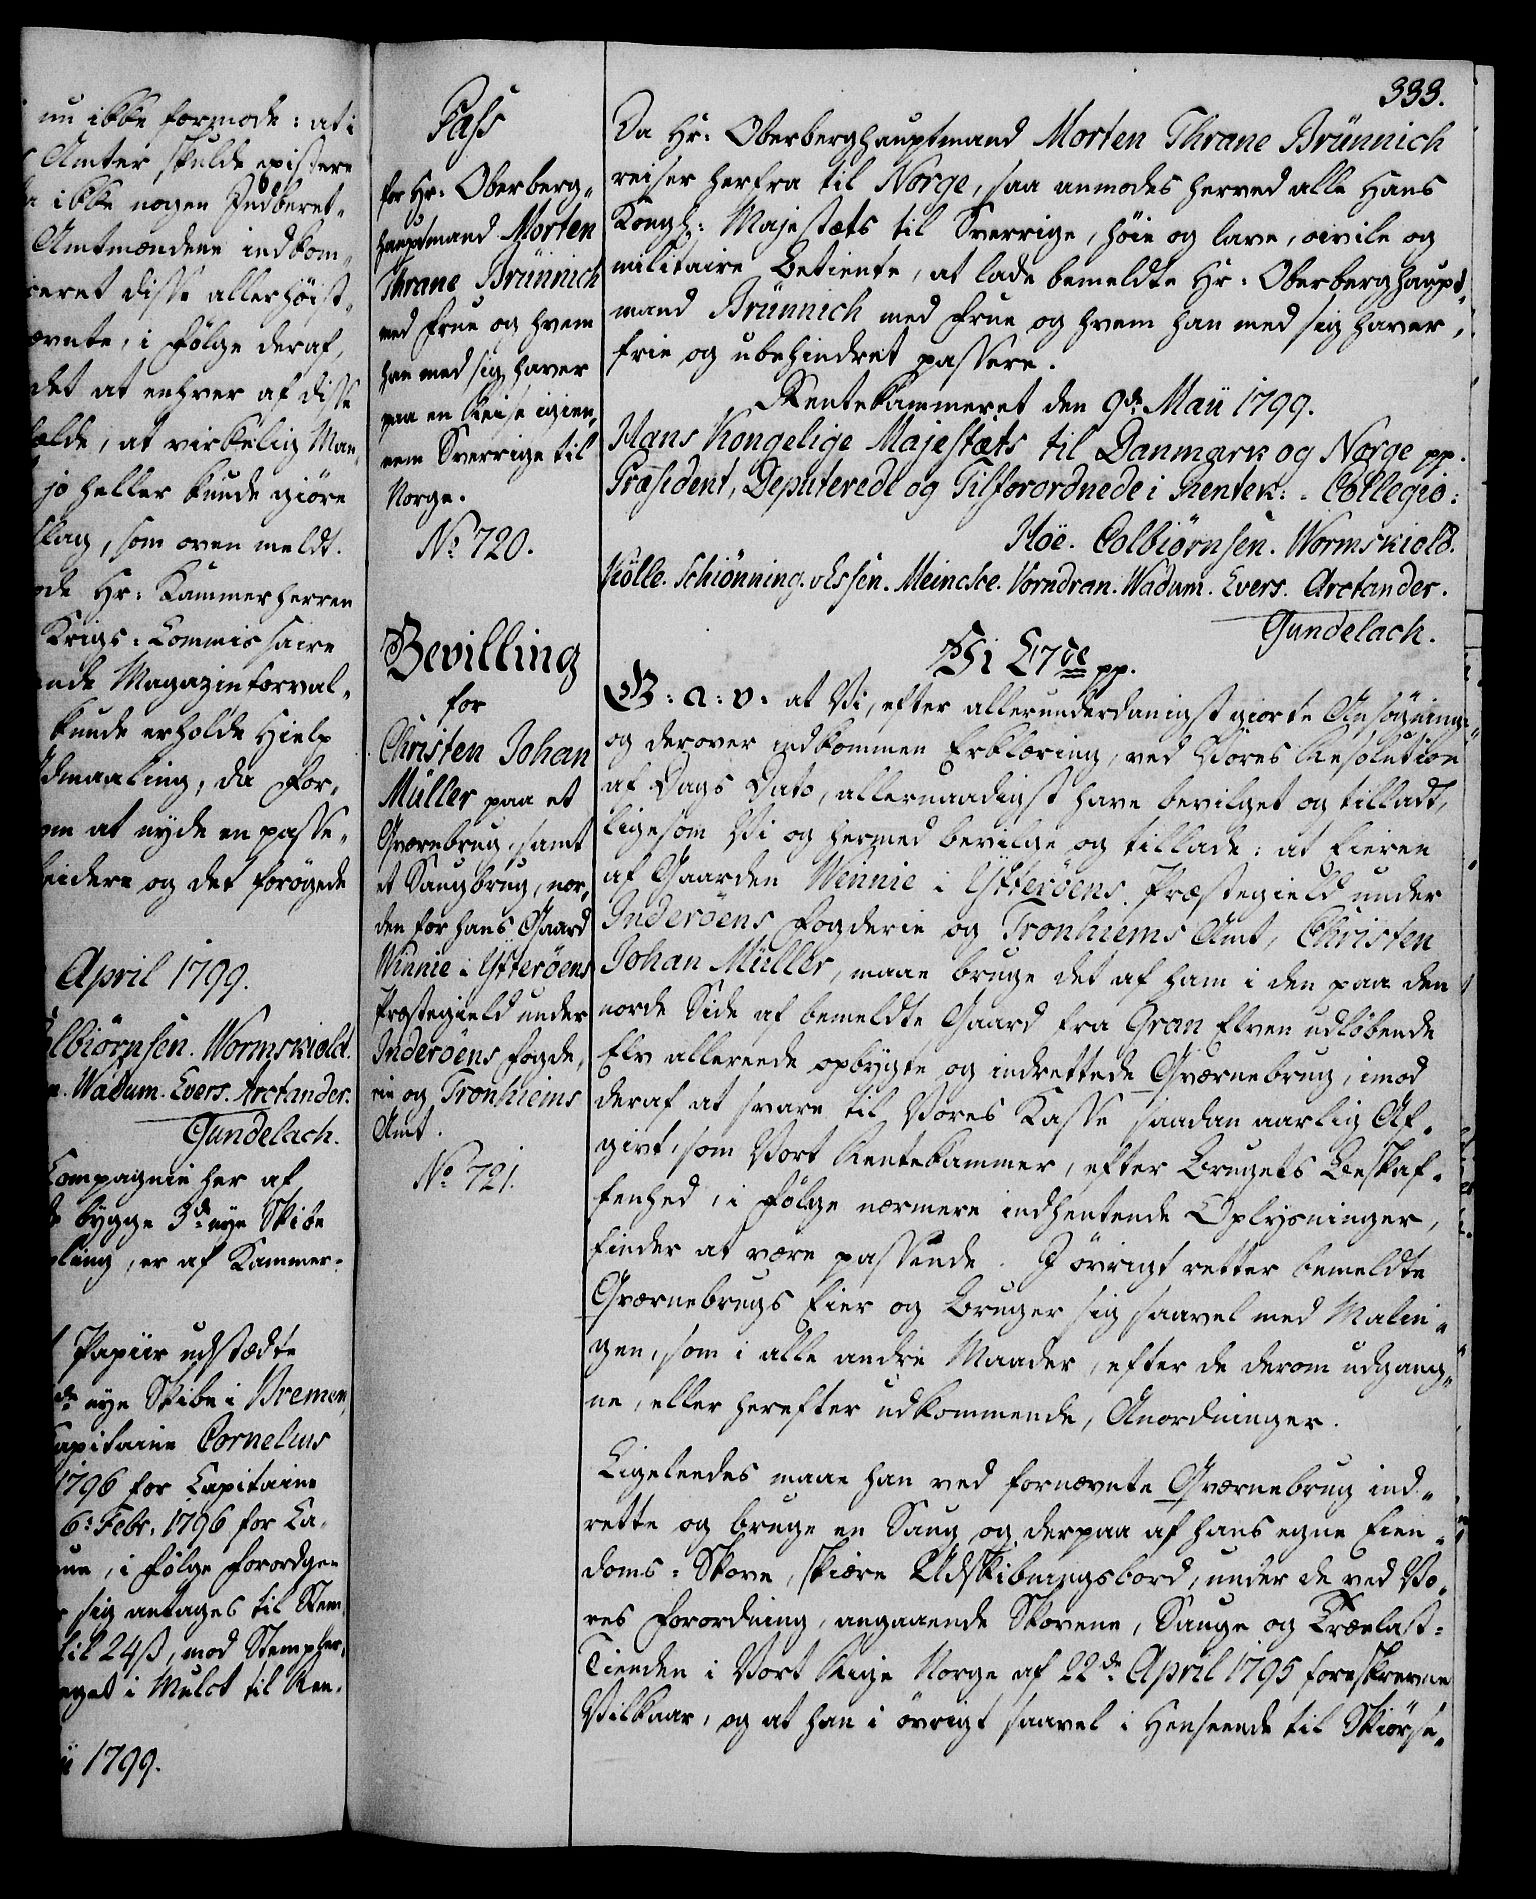 nu ikke formode: at i
Amter skulde existere
ikke nogen Indberet-
Amtmændene indkom-
ceret disse allerhøist-
nævnte, i Følge deraf,
det at enhver af disse
at virkelig Man-
jo heller kunde giøre
slag, som oven meldt.
Hr: Kammerherren
Krigs-Commissaire
Magazinforval-
kunde erholde Hielp
Udmaaling, da For-
om at nyde en passe-
beidere og det forøgede
April 1799.
Colbiørnsen. Wormskiold.
Wadum. Evers. Arctander.
Gundelach.
Compagnie her af
bygge 3de nye Skibe
er af Kammer-
Papiir udstædte
nye Skibe i Bremen,
Capitaine Cornelius
1796 for Capitaine
6: Febr: 1796 for Ca-
i Følge Forordgen
sig antages til Stem
til 24 ß, mod Stempler,
i Mulct til Ren-
1799.
Pass
for Hr: Oberberg-
hauptmand Morten
Thrane Brünnich
med Frue og hvem
han med sig haver
paa en Reise igien-
nem Sverrige til
Norge.
No 720.
Bevilling
for
Christen Johan
Müller paa et
Qværnebrug, samt
et Saugbrug, nor-
den for hans Gaard
Winnie i Ytterøens
Præstegield under
Inderøens Fogde-
rie og Tronhiems
Amt.
No 721.
333.
Da Hr: Oberberghauptmand Morten Thrane Brünnich
reiser herfra til Norge, saa anmodes herved alle Hans
Kongl: Majestæts til Sverrige, høie og lave, civile og
militaire Betiente, at lade bemeldte Hr: Oberberghaupt-
mand Brünnich med Frue og hvem han med sig haver,
frie og ubehindret passere.
Rentekammeret den 9de Maii 1799.
Hans Kongelige Majestæts til Danmark og Norge pp.
Præsident, Deputerede og Tilforordnede i Rentek: Collegio:
Høe. Colbiørnsen. Wormskiold.
Kølle. Schiønning. Essen. Meincke. Vorndran. Wadum. Evers. Arctander.
Gundelach.
Vi C 7de pp.
G: a: v: at Vi, efter allerunderdanigst giorte Ansøgning,
og derover indkommen Erklæring, ved Vores Resolution
af Dags Dato, allernaadigst have bevilget og tilladt,
ligesom Vi og hermed bevilge og tillade: at Eieren
af Gaarden Winnie i Ytterøens Præstegield under
Inderøens Fogderie og Tronhiems Amt, Christen
Johan Müller, maae bruge det af ham i den paa den
norde Side af bemeldte Gaard fra Gran Elven udløbende
Elv allerede opbygte og indrettede Qværnebrug, imod
deraf at svare til Vores Kasse saadan aarlig Af-
givt, som Vort Rentekammer, efter Brugets Beskaf-
fenhed, i Følge nærmere indhentende Oplysninger,
finder at være passende. I øvrigt retter bemeldte
Qværnebrugs Eier og Bruger sig saavel med Malin-
gen, som i alle andre Maader, efter de derom udgang-
ne, eller herefter udkommende, Anordninger.
Ligeledes maae han ved fornævnte Qværnebrug ind-
rette og bruge en Saug og derpaa af hans egne Eien-
doms-Skove, skiære Udskibningsbord, under de ved Vo-
res Forordning, angaaende Skovene, Sauge og Trælast-
Tienden i Vort Rige Norge af 22de April 1795 foreskrevne
Vilkaar, og at han i øvrigt saavel i Henseende til Skiørse-